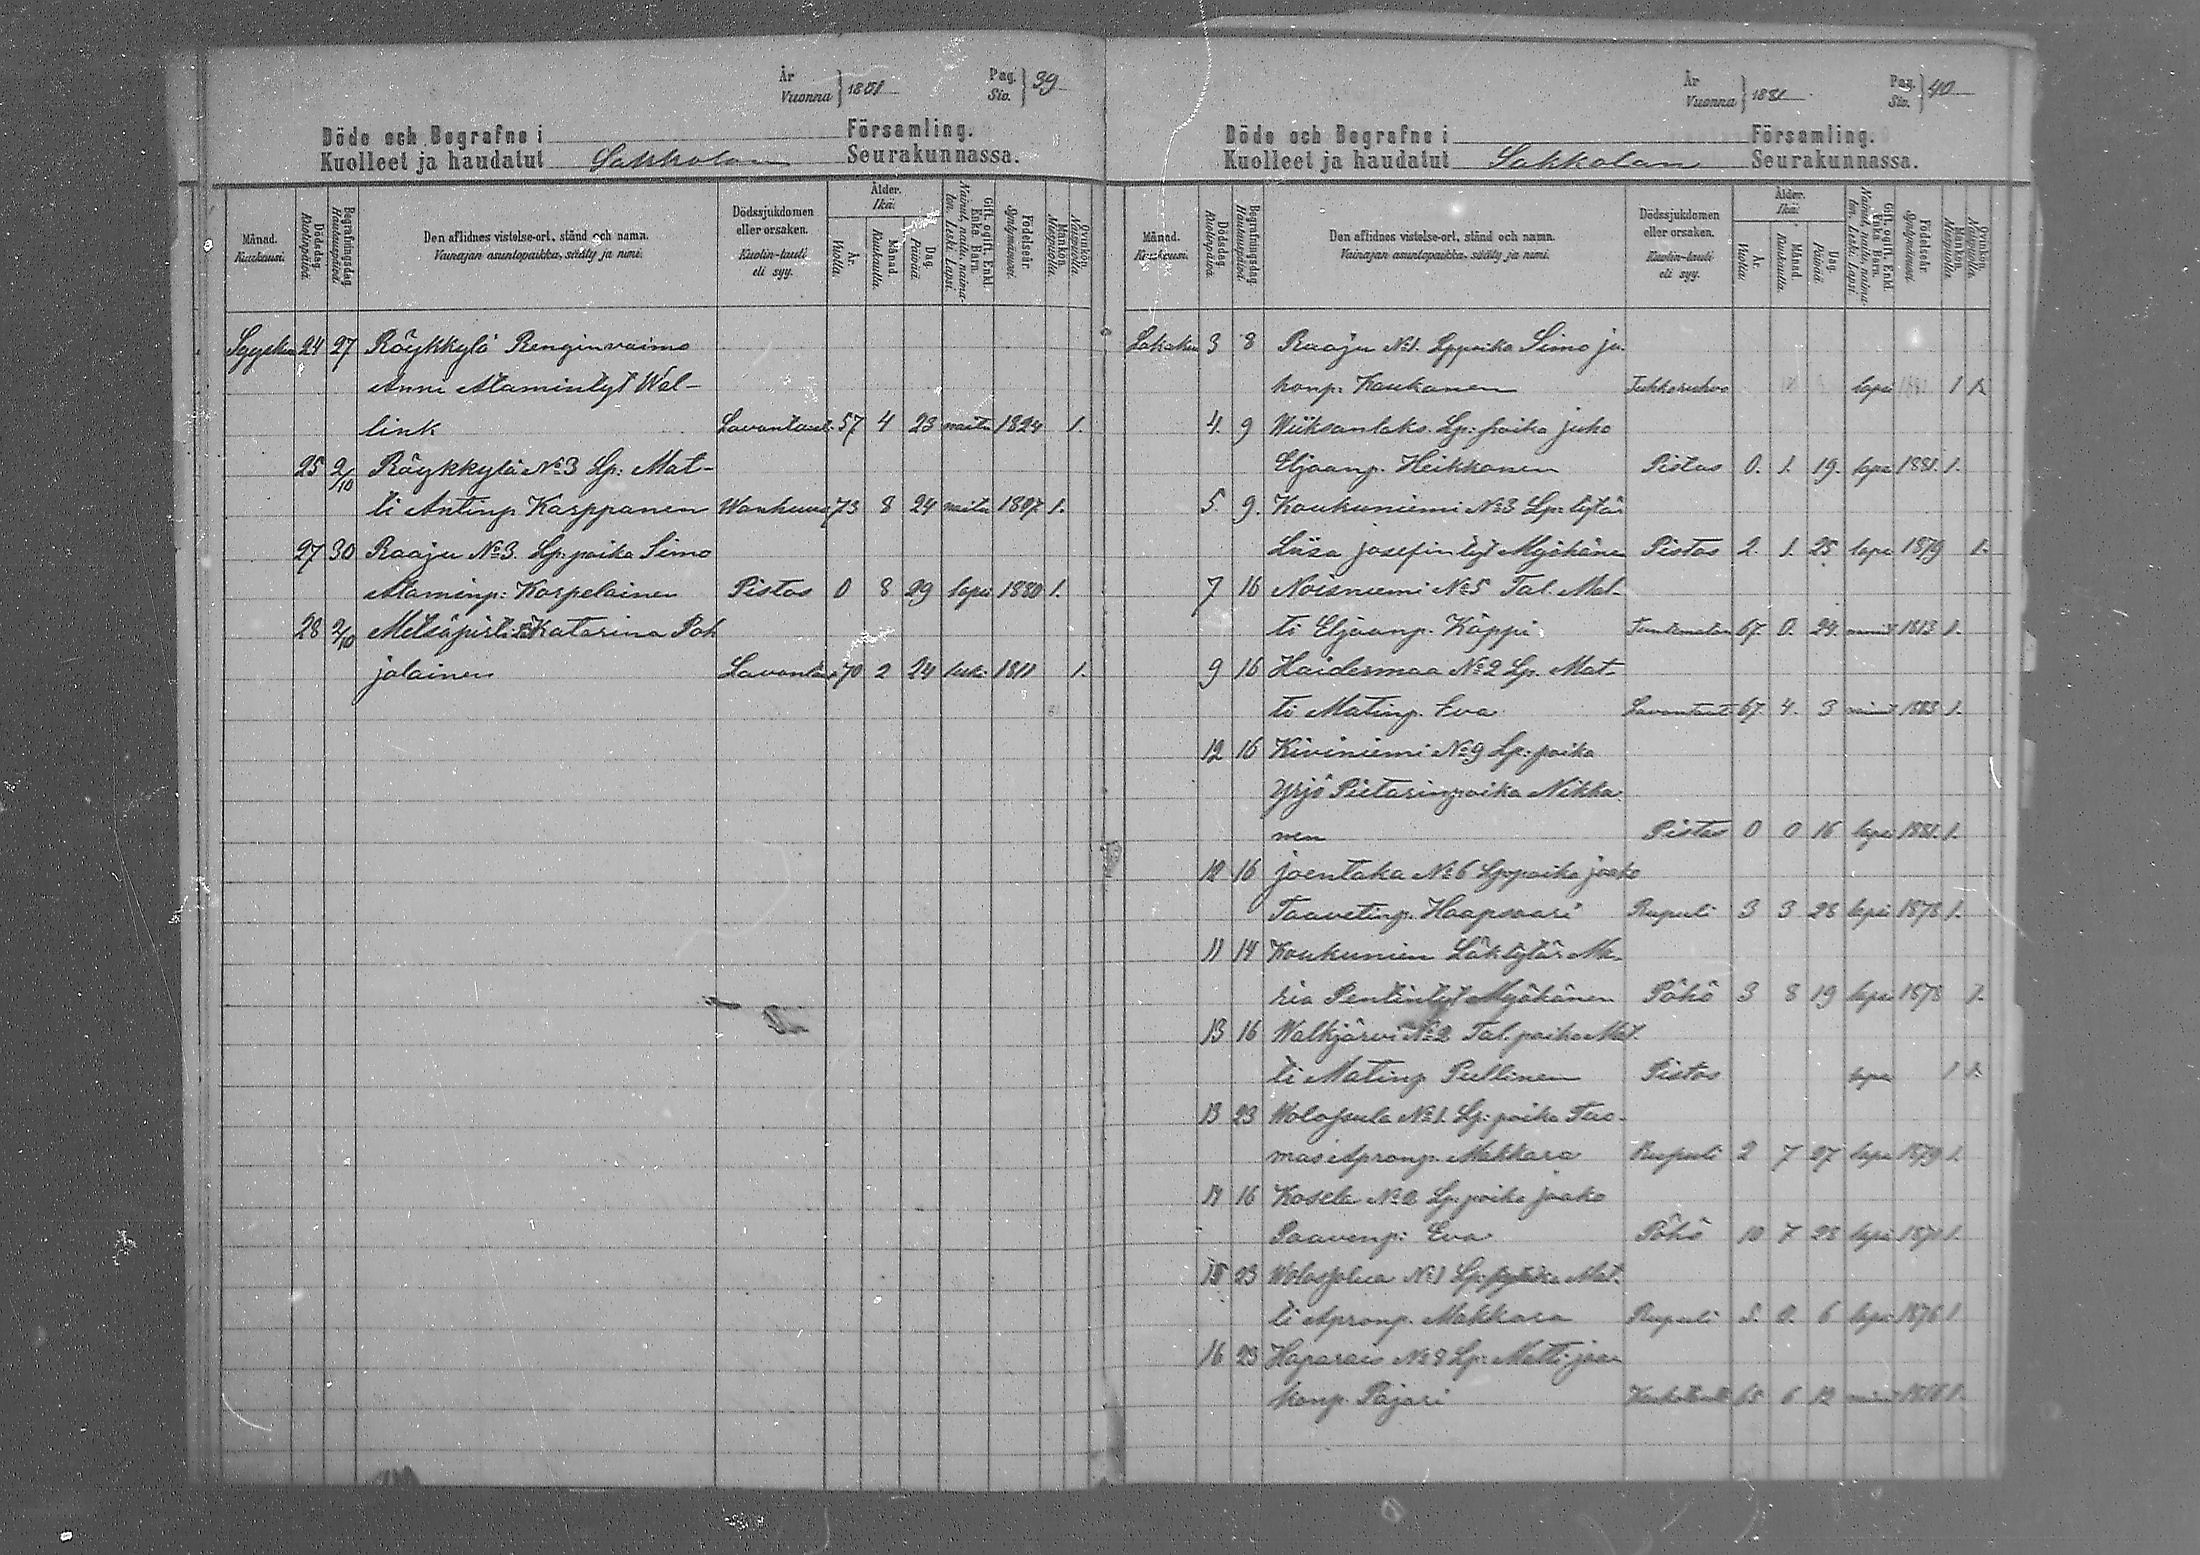 År
Vuonna } 1881
Pag.
Siv. } 39
Döde och Begrafne i Församling.
Kuolleet ja haudatut Sakkolan Seurakunnassa.
Månad. Kuukausi.
Dödsdag. Kuolinpäivä.
Begrafningsdag. Hautauspäivä.
Den aflidnes vistelse-ort, stånd och namn. Vainajan asuntopaikka, sääty ja nimi.
Dödssjukdomen eller orsaken. Kuolin-tauti eli syy.
Ålder. Ikä.
År. Vuotta.
Månad. Kuukautta.
Dag. Päivää.
Gift, ogift, Enkl. Enka Barn. Nainut, naitu, naimaton. Leski. Lapsi.
Födelseår. Syntymävuosi.
Mankön. Miespuolia.
Qvinkön. Naispuolia.
Syyskuu 24 27 Röykkylä Renginvaimo
Anni Atamintyt Wal-
link Lavantaut. 57 4 23 naitu 1824 1.
25 2/10 Röykkylä No 3 Lp: Mat-
ti Antinp. Karppanen Wanhuus 73 8 24 naitu 1807 1.
27 30 Raaju No 3. Lp: poika Simo
Ataminp: Korpelainen Pistos 0 8 29 lapsi 1880 1.
28 2/10 Metsäpirti Katarina Poh
jalainen Lavantau 70 2 24 leski 1811 1.
År
Vuonna } 1881
Pag.
Siv. } 40
Döde och Begrafne i Församling.
Kuolleet ja haudatut Sakkolan Seurakunnassa.
Månad. Kuukausi.
Dödsdag. Kuolinpäivä.
Begrafningsdag. Hautauspäivä.
Den aflidnes vistelse-ort, stånd och namn. Vainajan asuntopaikka, sääty ja nimi.
Dödssjukdomen eller orsaken. Kuolin-tauti eli syy.
Ålder. Ikä.
År. Vuotta.
Månad. Kuukautta.
Dag. Päivää.
Gift, ogift, Enkl. Enka Barn. Nainut, naitu, naimaton. Leski. Lapsi.
Födelseår. Syntymävuosi.
Mankön. Miespuolia.
Qvinkön. Naispuolia.
Lokakuu 3 8 Raaju No 1. Lp poika Simo ja
konp. Kaukanen lapsi 1881 1
4. 9 Wiiksanlaks. Lp: poika juho
Eljaanp. Heikkonen Pistos 0. 1. 19. lapsi 1881. 1.
5. 9. Koukuniemi No 3 Lp: tytär
Liisa josefintyt Myöhänen Pistos 2. 1. 25. lapsi 1879 1.
7 16 Noisniemi No 5 Tal. Mat-
ti Eljaanp. Käppi Tuntematon 67. 0. 24. 1813 1.
9 16 Haidermaa No 2 Lp. Mat-
ti Matinp. Eva Lavantaut 67. 4. 3 1.
12 16 Kiviniemi No 9 Lp: poika
Yrjö Pietarinpoika Nikka-
nen Pistos 0 0 16 lapsi 1881. 1.
16 joentaka No 6 Lp: poika jaako
Taavetinp. Haapsaari Rupuli 3 3 28 lapsi 1878 1.
11 14 Koukunien Läktytär Ma-
ria Pentintyt Myöhänen Pöhö 3 8 19 lapsi 1878 1.
13 16 Walkjärvi No 2 Tal. poika Mat-
ti Matinp Pullinen Pistos lapsi 1
13 23 No 1. Lp: poika Tuo-
mas Apronp. Makkara Rupuli 2 7 27 lapsi 1879 1.
14 16 Kosela No 2 Lp: poika jaako
Paavonp: Eva Pöhö 10 7 28 lapsi 1871 1.
15 23 No 1 Lp: poika Mat-
ti Apronp. Makkara Rupuli 5. 0. 6 lapsi 1876 1
16 23 Haparais No 8 Lp: Matti jaa
konp. Pajari 65 6 12 1.